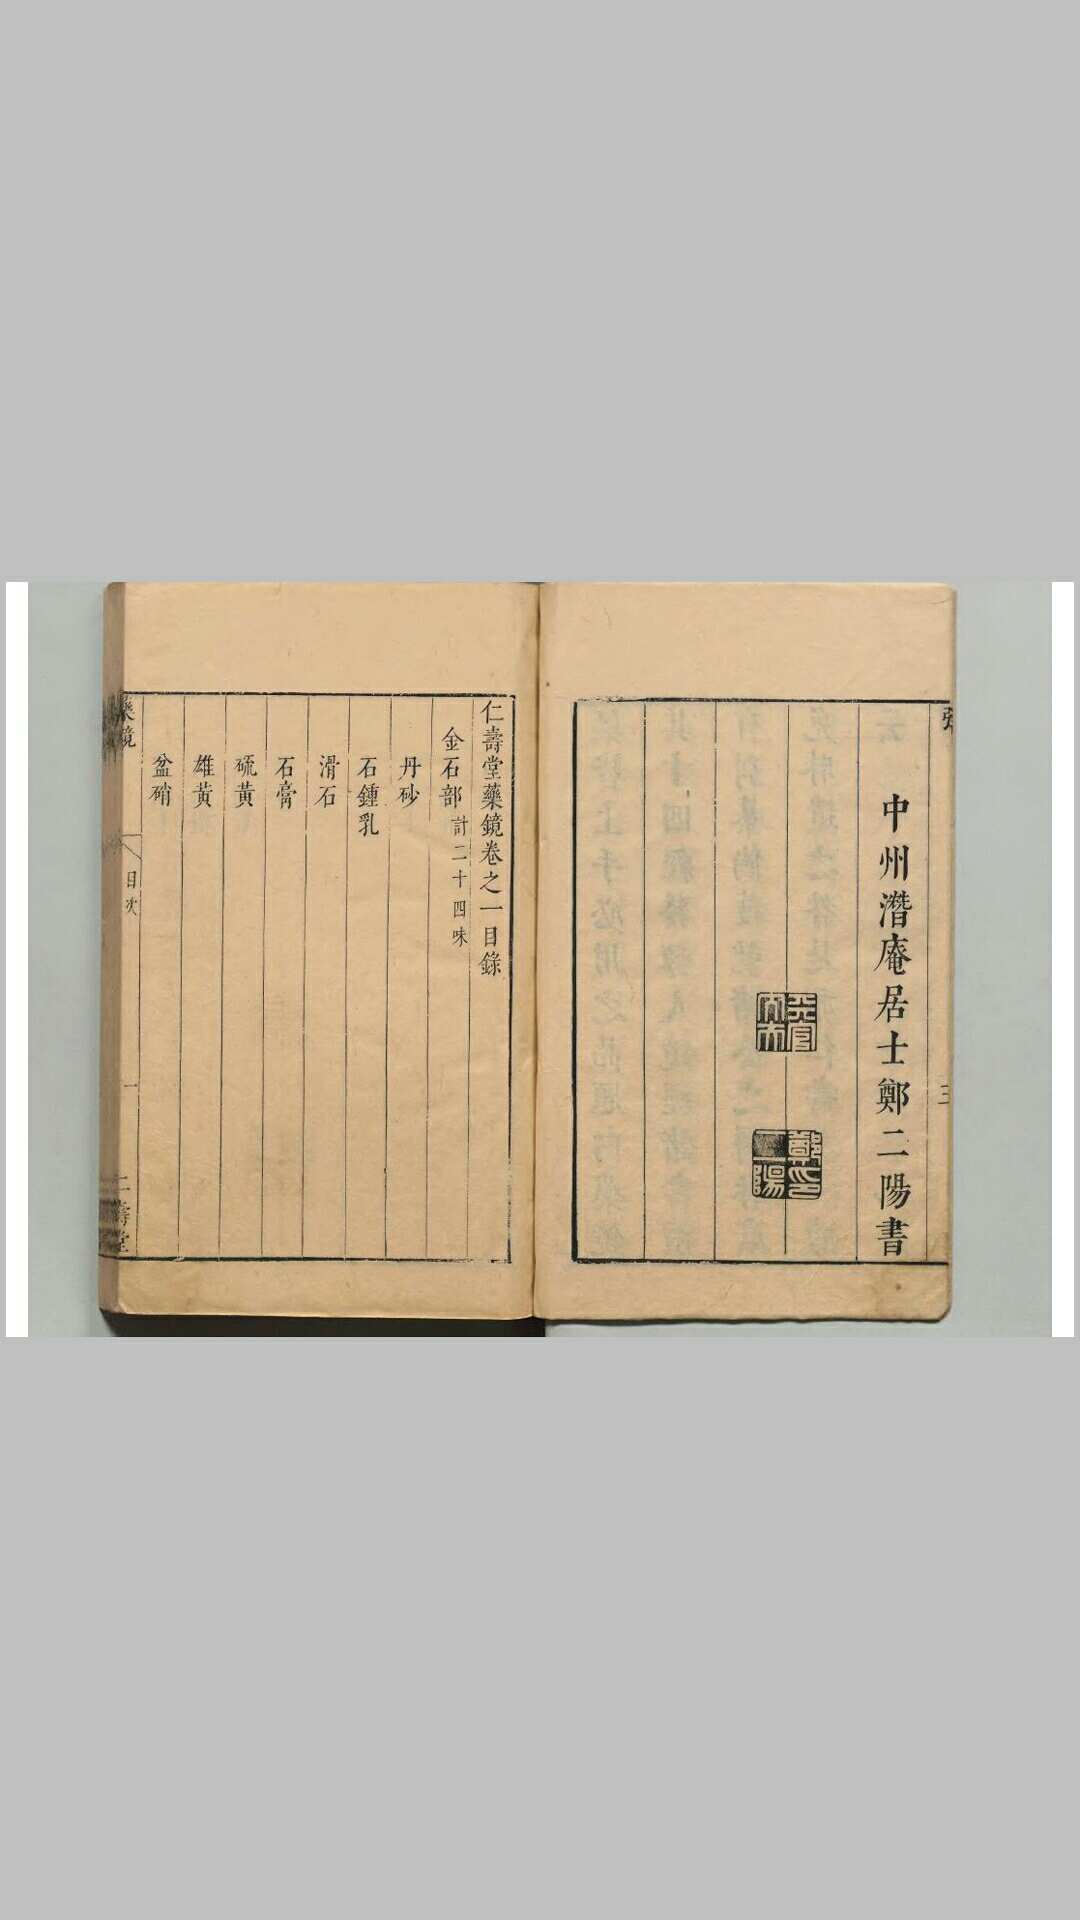 中州潛庵居士鄭二陽書
鄭二陽印
仁壽堂藥鏡卷之一目錄
金石部 計二十四味
丹砂
石鍾乳
滑石
石膏
硫黃
雄黃
盆硝
藥鏡 目次 一 仁壽堂